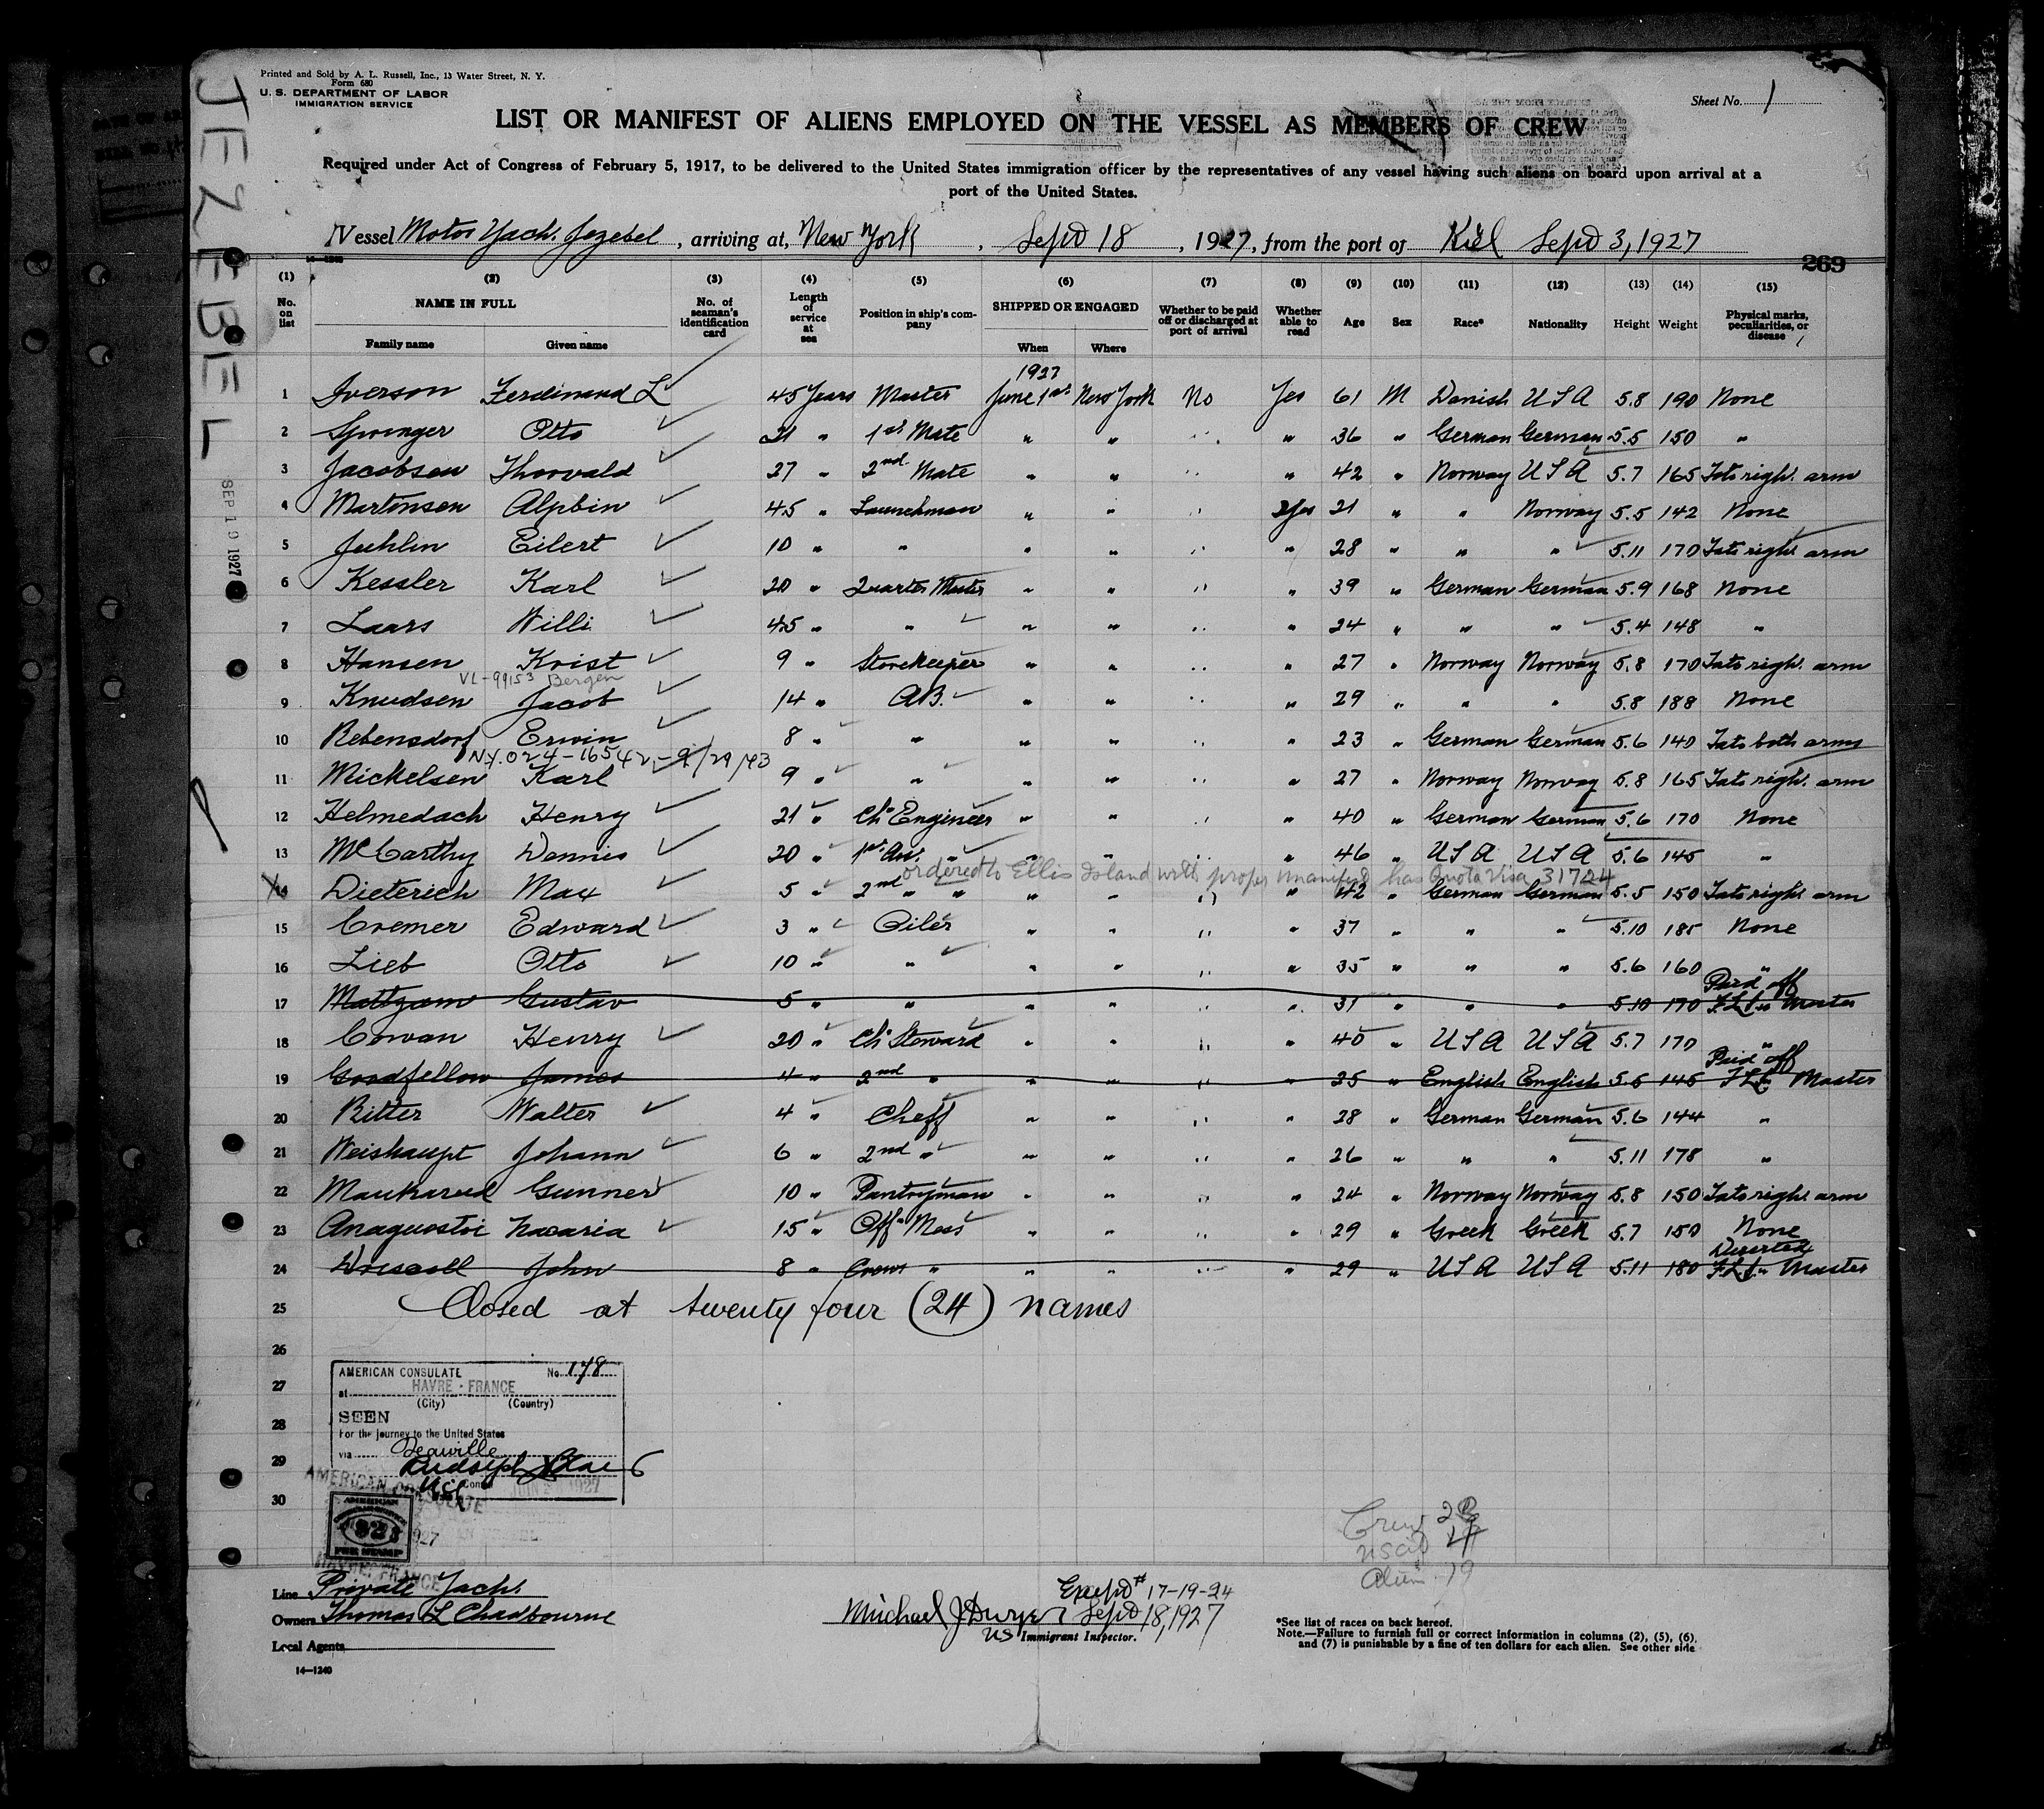 JEZEBEL
SEP 19 1927
Printed and Sold by A. L. Russell, Inc., 13 Water Street, N. Y.
Form 680
U. S. DEPARTMENT OF LABOR
IMMIGRATION SERVICE
Sheet No. 1
LIST OR MANIFEST OF ALIENS EMPLOYED ON THE VESSEL AS MEMBERS OF CREW
Required under Act of Congress of February 5, 1917, to be delivered to the United States immigration officer by the representatives of any vessel having such aliens on board upon arrival at a
port of the United States.
Vessel Motor Yacht Jezebel, arriving at, New York, Sept 18, 1927, from the port of Kiel Sept 3, 1927
14—1240
269
(1) (2) (3) (4) (5) (6) (7) (8) (9) (10) (11) (12) (13) (14) (15)
No. on list NAME IN FULL Family name Given name No. of seaman's identification card Length of service at sea Position in ship's company SHIPPED OR ENGAGED When Where Whether to be paid off or discharged at port of arrival Whether able to read Age Sex Race* Nationality Height Weight Physical marks, peculiarities, or disease
1927
1 Iverson Ferdinand L 45 Years Master June 1st New York No Yes 61 M Danish USA 5.8 190 None
2 Springer Otto 21 " 1st Mate " " " " 36 " German German 5.5 150 "
3 Jacobsen Thorvald 27 " 2nd Mate " " " " 42 " Norway USA 5.7 165 Tato right arm
4 Martonsen Alpbin 4.5 " Launchman " " " Yes 21 " " Norway 5.5 142 None
5 Juhlin Eilert 10 " " " " " " 28 " " " 5.11 170 Tato right arm
6 Kessler Karl 20 " Quarter Master " " " " 39 " German German 5.9 168 None
7 Laars Willi 4.5 " " " " " " 24 " " " 5.4 148 "
8 Hansen Krist 9 " Storekeeper " " " " 27 " Norway Norway 5.8 170 Tato right arm
VL-99153 Bergen
9 Knudsen Jacob 14 " AB. " " " " 29 " " " 5.8 188 None
10 Rebensdorf Erwin 8 " " " " " " 23 " German German 5.6 140 Tato both arms
N.Y. 024-16542-9/29/43
11 Mickelsen Karl 9 " " " " " " 27 " Norway Norway 5.8 165 Tato right arm
12 Helmedach Henry 21 " Ch Engineer " " " " 40 " German German 5.6 170 None
13 McCarthy Dennis 20 " 1st Ass. " " " " " 46 " USA USA 5.6 145 "
ordered to Ellis Island with proper manifest has Quota Visa 31724
14 Dieterich Max 5 " 2nd " " " " " " 42 " German German 5.5 150 Tato right arm
15 Cremer Edward 3 " Oiler " " " " 37 " " " 5.10 185 None
16 Lieb Otto 10 " " " " " " 35 " " " 5.6 160 "
Paid off
17 Gustav 5 " " " " " " 31 " " " 5.10 170 F.L.I. Master
18 Cowan Henry 20 " Ch Steward " " " " 40 " USA USA 5.7 170 "
Paid off
19 Goodfellow James 4 " 2nd " " " " " 25 " English English 5.6 145 F.L.I. Master
20 Ritter Walter 4 " Cheff " " " " 28 " German German 5.6 144 "
21 Weishaupt Johann 6 " 2nd " " " " " 26 " " " 5.11 178 "
22 Gunner 10 " Pantryman " " " " 24 " Norway Norway 5.8 150 Tato right arm
23 Anagnostoi Nacaria 15 " Off Mess " " " " 29 " Greek Greek 5.7 150 None
Deserted
24 Driscoll John 8 " Crews " " " " " 29 " USA USA 5.11 180 F.L.I. Master
25 Closed at twenty four (24) names
26
27
28
29
30
AMERICAN CONSULATE No. 178
at HAVRE - FRANCE
(City) (Country)
SEEN
For the journey to the United States
via Deauville
AMERICAN CONSULATE
HAVRE, FRANCE
AMERICAN
FEE STAMP
Crew
USCit 4
Alien 19
Line Private Yacht
Owners Thomas L Chadbourne
Local Agents
14—1240
Except # 17-19-24
Michael J Dwyer Sept 18, 1927
US Immigrant Inspector.
*See list of races on back hereof.
Note.—Failure to furnish full or correct information in columns (2), (5), (6),
and (7) is punishable by a fine of ten dollars for each alien. See other side